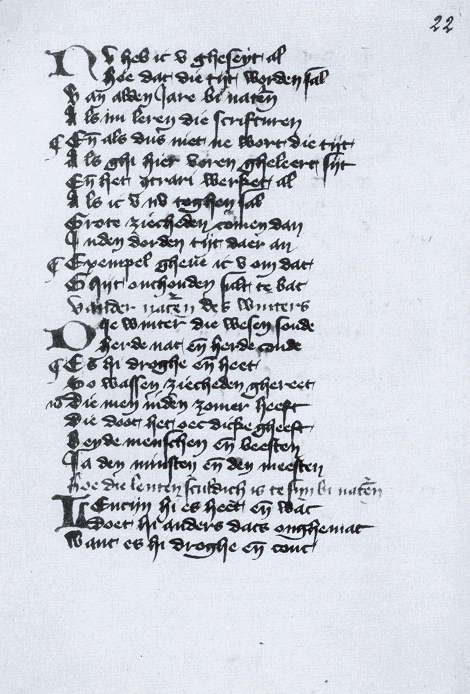 22
Nv heb ic v gheseyt al
Hoe dat die tijt worden sal
Van alden Jare bi naturē
Als mi leren die scrifturen
¶ Eñ als dus niet ne wort die tijt
Als ghi hier voren gheleert sijt
Eñ het contrari werket al
Als ic v nv toghen sal
Grote ziecheden comen dan
Inden dorden tijt daer an
¶ Exempel gheue ic v om dat
Ghijt onthouden sult te bat
Vander naturē des winters
Die winter die wesen soude
Herde nat eñ herde coude
¶ Es hi droghe eñ heet
So wassen ziecheden ghereet
Die men inden zomer heeft
Die doot het oec dicke gheeft
Beyde menschen eñ beesten
Ja den minsten eñ den meesten
Hoe die lenten sculdich is te sijn bi naturē
Lentijn hi es heet eñ nat
Doet hi anders dats onghemat
Want es hi droghe eñ cout